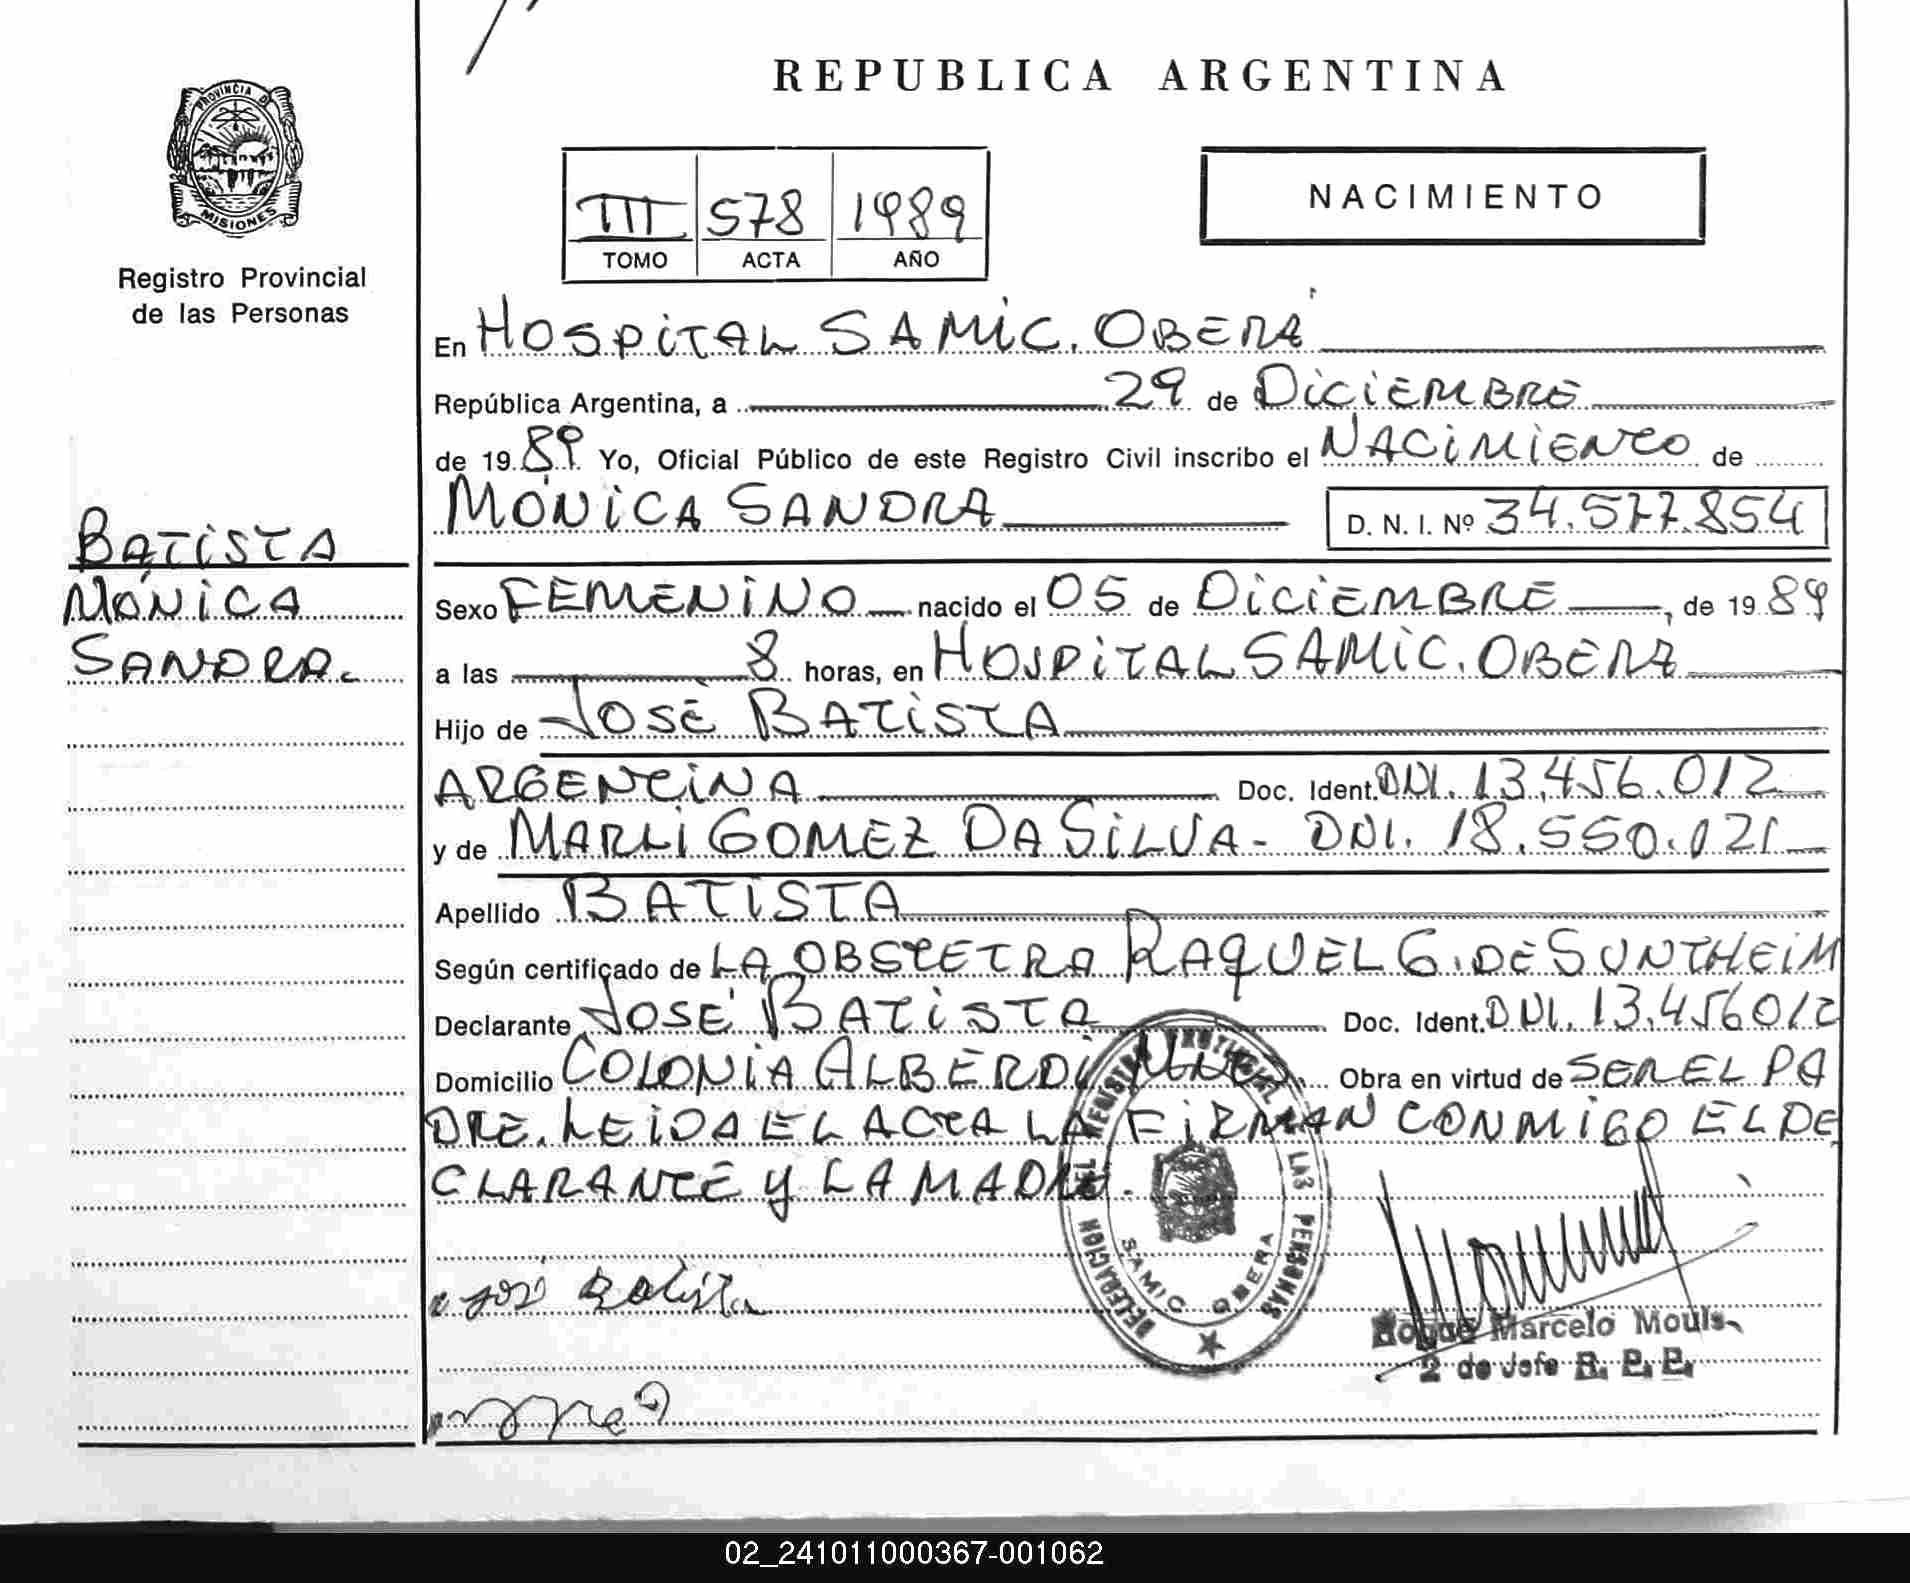 REPUBLICA ARGENTINA
PROVINCIA DE MISIONES
Registro Provincial
de las Personas
III 578 1989
TOMO ACTA AÑO
NACIMIENTO
En HOSPITAL SAMIC. OBERÁ
República Argentina, a 29 de DICIEMBRE
de 1989 Yo, Oficial Público de este Registro Civil inscribo el NACIMIENTO de
MÓNICA SANDRA D. N. I. Nº 34.577.854
BATISTA
MÓNICA
SANDRA.
Sexo FEMENINO nacido el 05 de DICIEMBRE, de 1989
a las 8 horas, en HOSPITAL SAMIC. OBERA
Hijo de JOSÉ BATISTA
ARGENTINA Doc. Ident. DNI. 13.456.012
y de MARLI GOMEZ DA SILVA - DNI. 18.550.121
Apellido BATISTA
Según certificado de LA OBSTETRA RAQUEL G. DE SUNTHEIM
Declarante JOSÉ BATISTA Doc. Ident. DNI. 13.456012
Domicilio COLONIA ALBERDI Obra en virtud de SER EL PA
DRE. LEIDA EL ACTA LA FIRMAN CONMIGO EL DE
CLARANTE Y LA MADRE.
DELEGACION DEL REGISTRO PROVINCIAL DE LAS PERSONAS
SAMIC OBERA
José Batista
Roque Marcelo Mouls
2 do Jefe R. P. P.
02_241011000367-001062